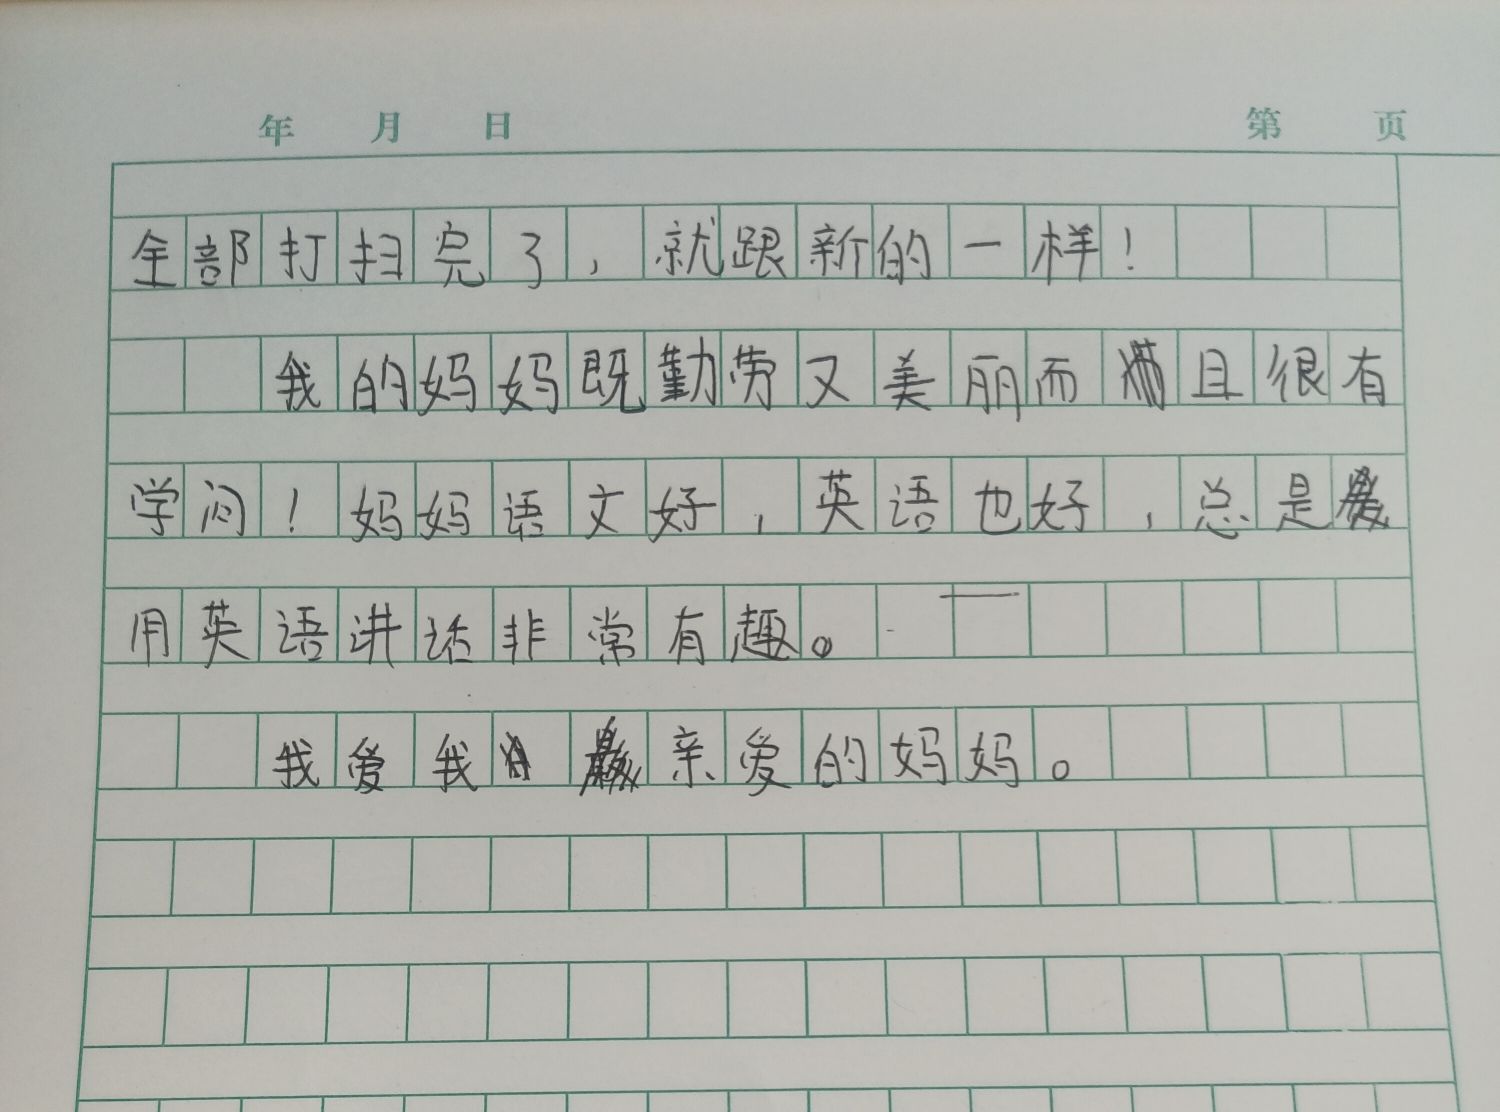 年 月 日 第 页
全部打扫完了，就跟新的一样！
我的妈妈既勤劳又美丽而且很有
学问！妈妈语文好，英语也好，总是
用英语讲话非常有趣。
我爱我亲爱的妈妈。